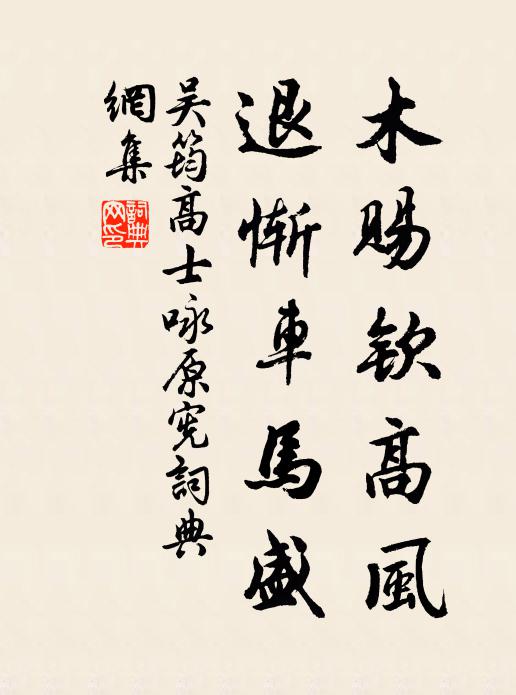 木賜欽高風
退慚車馬盛
吳筠高士咏原宪詞典
網集
詞典網印